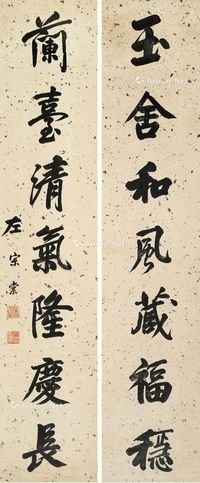 玉舍和風藏福穩
蘭臺清氣隆慶長
左宗棠